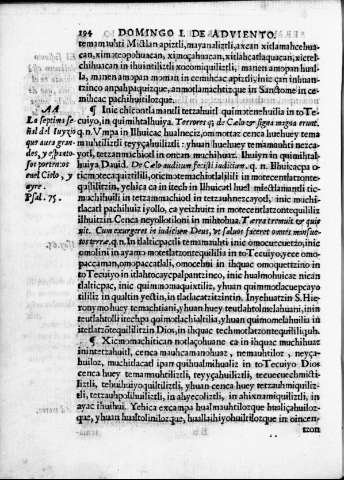 194 DOMINGO I. DE ADVIENTO.
temamauhti Mictlan apiztli, mayanaliztli, axcan xitlamacehua
can, ximateopohuacan, ximoçahuacan, xitlahcatlaquacan, xictel
chihuacan in ihuintiliztli xocomiquiliztli, manen amopan hual
la, manen amopan moman in cemihcac apiztli, inic çan inhuan
tzinco anpahpaquizque, anmotlamachtizque in Sanctome in ce
mihcac pachihuitilozque.
A A
¶ Inic chiconllamanli tetzahuitl quimotenehuilia in to Te-
La septima se
cuiyo, in quimihtalhuiya. Terrores q; de Cælo & signa magna erunt.
ñal del Iuyzio
q.n. Vmpa in Ilhuicac hualneciz, ommottaz cenca huehuey tema
que aura gran-
mauhtiliztli teyyçahuiliztli: yhuan huehuey temamauhti nezca-
des, y espanto-
yotl, tetzammachiotl in onçan mochihuaz. Ihuiyn in quimihtal
sos portentos
huiya Dauid. De Cælo auditum fecisti iudicium. q. n. Ilhuicacpa o-
en el Cielo, y
ticmotecaquitilili, oticmotehcamachiltili in motecentlatzonte-
ayre.
quililitzin, yehica ca in itech in Ilhuicatl huel miectlamantli tic-
Psal. 75.
muchihuili in tetzammachiotl in tetzauhnezcayotl, inic muchi
tlacatl pachihuiz iyollo, ca yeizhuitz in motecentlatzontequiliz
ilhuitzin. Cenca neyollotiloni in mihtohua. Terra tremuit & quie
uit. Cum exurgeret in iudicium Deus, vt saluos faceret omnes mansue-
tos terræ. q.n. In tlalticpactli temamauhti inic omocuecuetzo, inic
omolini in ayamo motetlatzontequililia in to Tecuiyo, yece omo-
paccaman, omopaccatlali, omocehui in ihquac omoquetzino in
to Tecuiyo in itlahtocaycpalpantzinco, inic hualmohuicaz nican
tlalticpac, inic quimmomaquixtiliz, yhuan quimmotlacuepcayo
tililiz in qualtin yectin, in tlatlacatzitzintin. Inyehuatzin S. Hie-
ronymo huey temachtiani, yhuan huey teutlahtolmelahuani, in in
teutlahtoltili itechpa quimotlachialtilia, yhuan quimomelahuilia in
itetlatzõtequiliztzin Dios, in ihquac techmotlatzontequililiquh.
¶ Xicmomachitican notlaçohuane ca in ihquac muchihuaz
inin tetzahuitl, cenca mauhcamanohuaz, nemauhtiloz, neyça-
huiloz, muchitlacatl ipan quihualmihualiz in to Tecuiyo Dios
cenca huey temamauhtiliztli, teyyçahuiliztli, teecuecuechmicti-
liztli, tehuihuiyoquiltiliztli, yhuan cenca huey tetzauhmiquiliz-
tli, tetzauhpolihuiliztli, in ahyecoliztli, in ahixnamiquiliztli, in
ayac ihuihui. Yehica excampa hualmauhtilozque hualiçahuiloz-
que, yhuan hualtolinilozque, hualtlahyohuiltilozque in oincen-
tzon